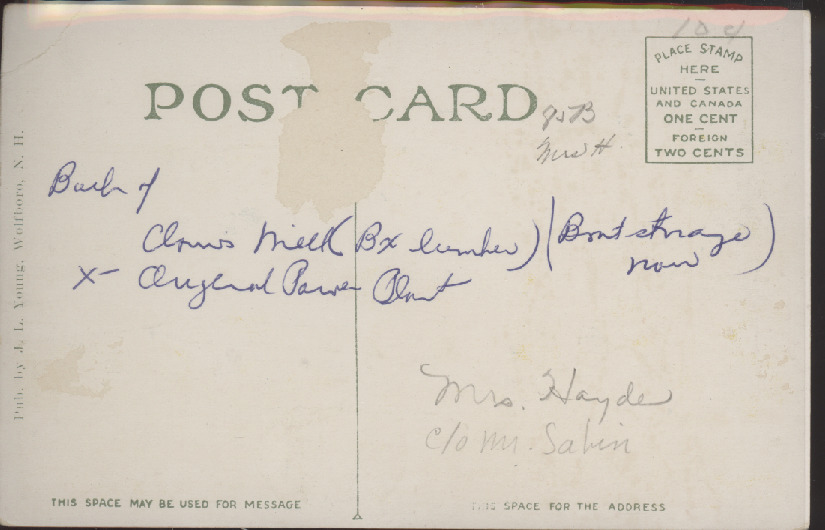 104
PLACE STAMP
HERE
UNITED STATES
AND CANADA
ONE CENT
FOREIGN
TWO CENTS
POST CARD
Mrs H
Back of
Clow's Mill (Bx lumber) (Boat storage
now)
X- Original Power Plant
Mrs. Hayde
c/o Mr. Sabin
Pub. by J. L. Young, Wolfboro, N. H.
THIS SPACE MAY BE USED FOR MESSAGE
THIS SPACE FOR THE ADDRESS